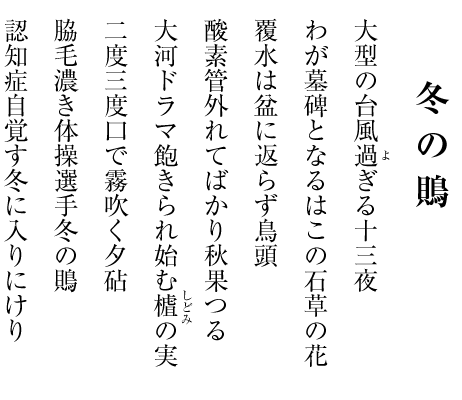 冬の鵙
大型の台風過ぎる十三夜
わが墓碑となるはこの石草の花
覆水は盆に返らず鳥頭
酸素管外れてばかり秋果つる
大河ドラマ飽きられ始む樝の実
二度三度口で霧吹く夕砧
脇毛濃き体操選手冬の鵙
認知症自覚す冬に入りにけり
よ
しどみ